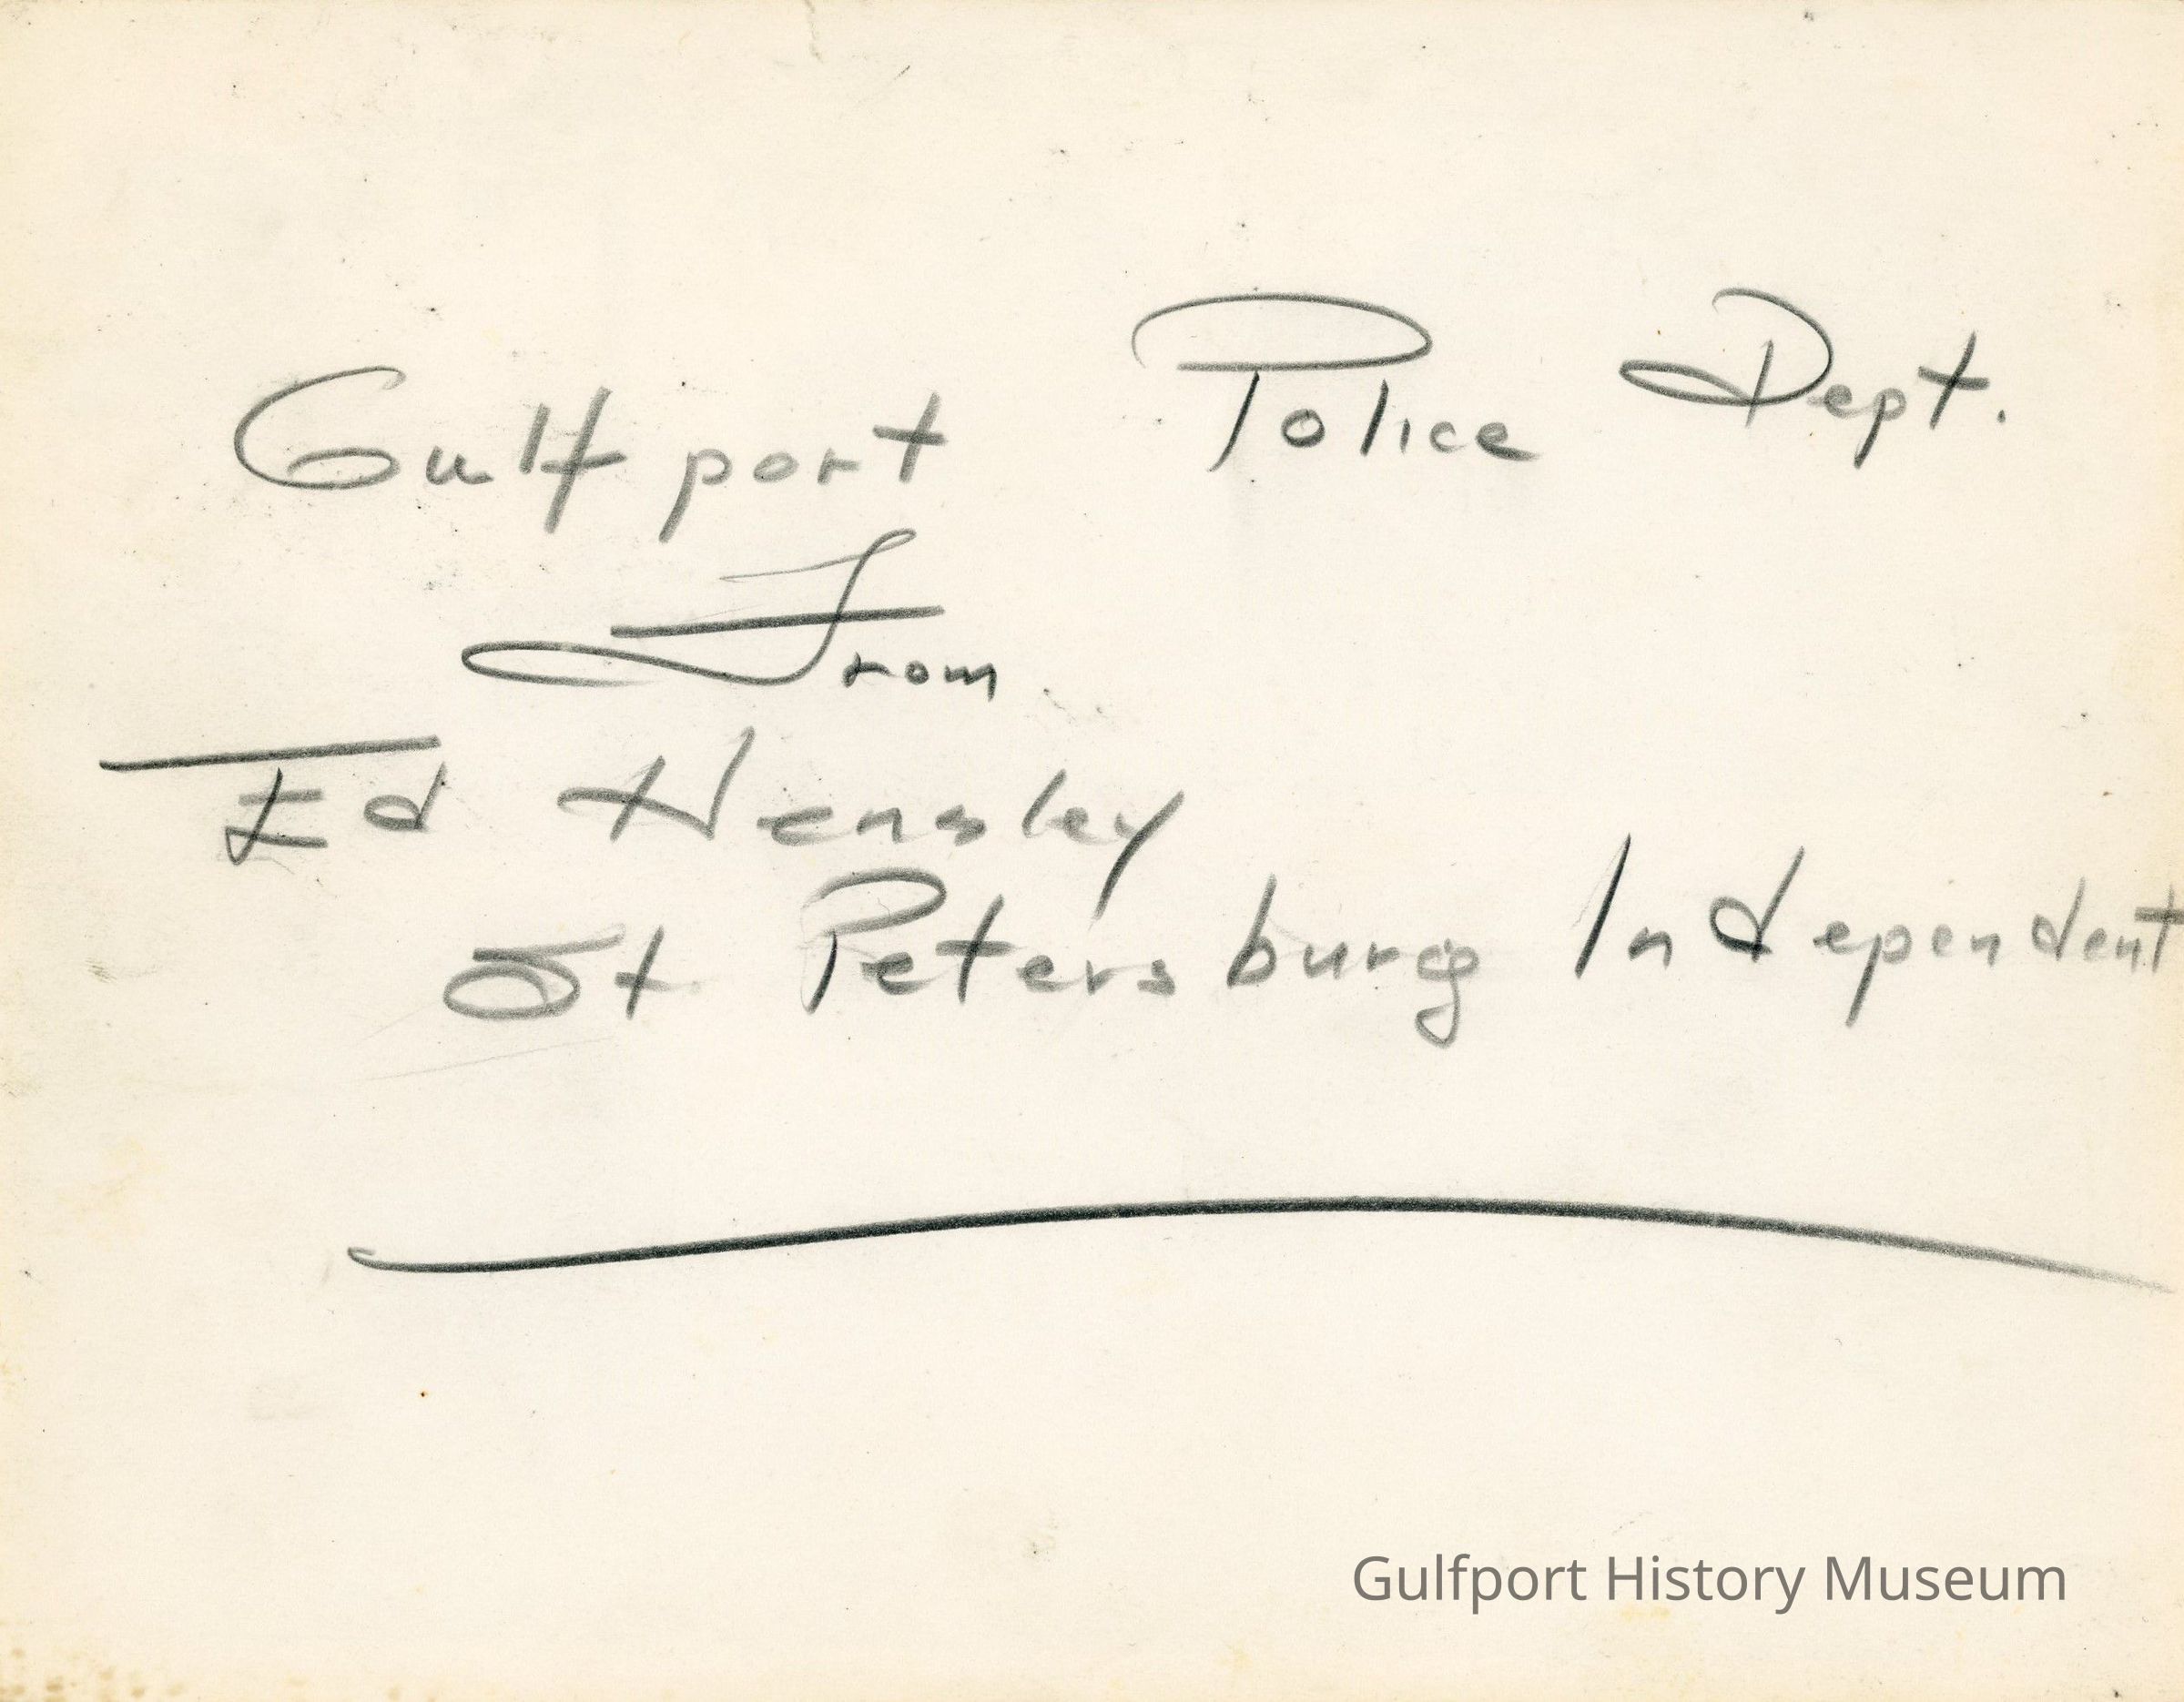 Gulfport Police Dept.
From
Ed Hensley
St Petersburg Independent
Gulfport History Museum